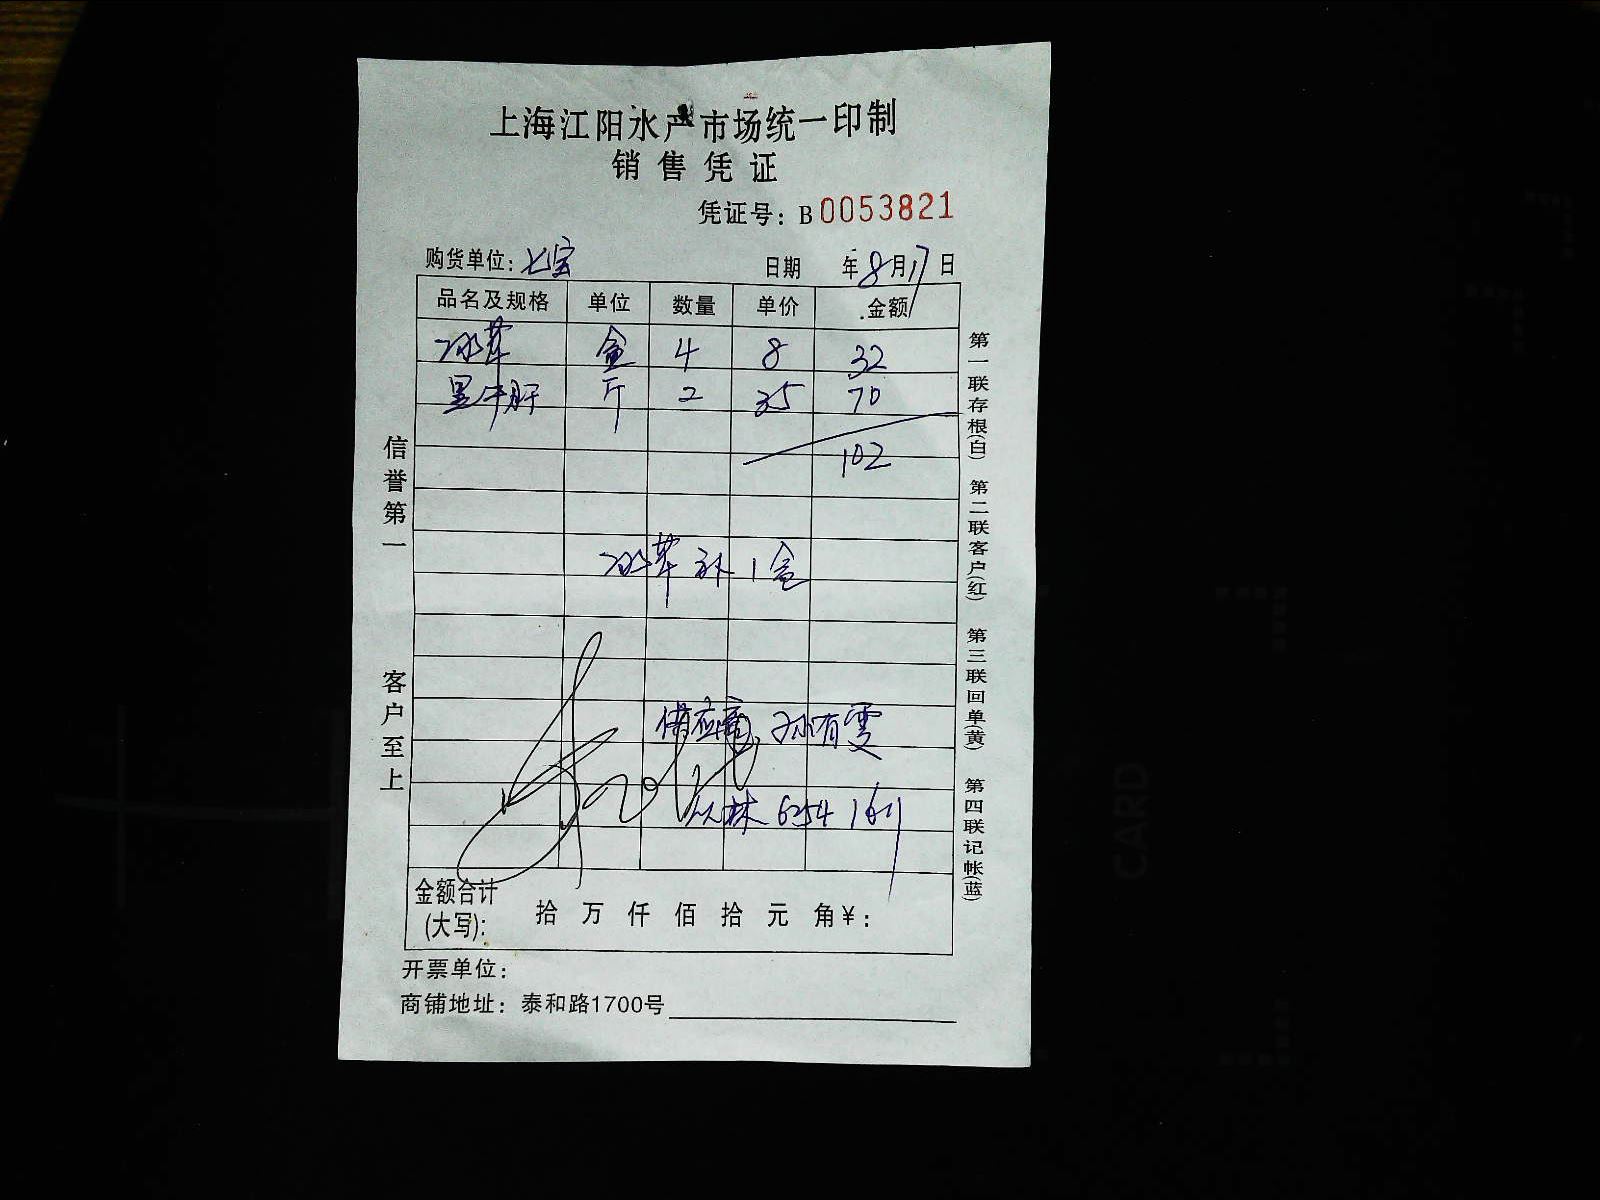 上海江阳水产市场统一印制
销售凭证
凭证号：B0053821
购货单位：七宝 日期 年8月17日
品名及规格 单位 数量 单价 金额
冰草 盒 4 8 32
黑牛肝 斤 2 35 70
102
冰草补1盒
供应商 孙有雯
丛林 6254
金额合计
(大写)： 拾万仟佰拾元角¥：
开票单位：
商铺地址：泰和路1700号
信誉第一
客户至上
第一联存根(白) 第二联客户(红) 第三联回单(黄) 第四联记帐(蓝)
CARD